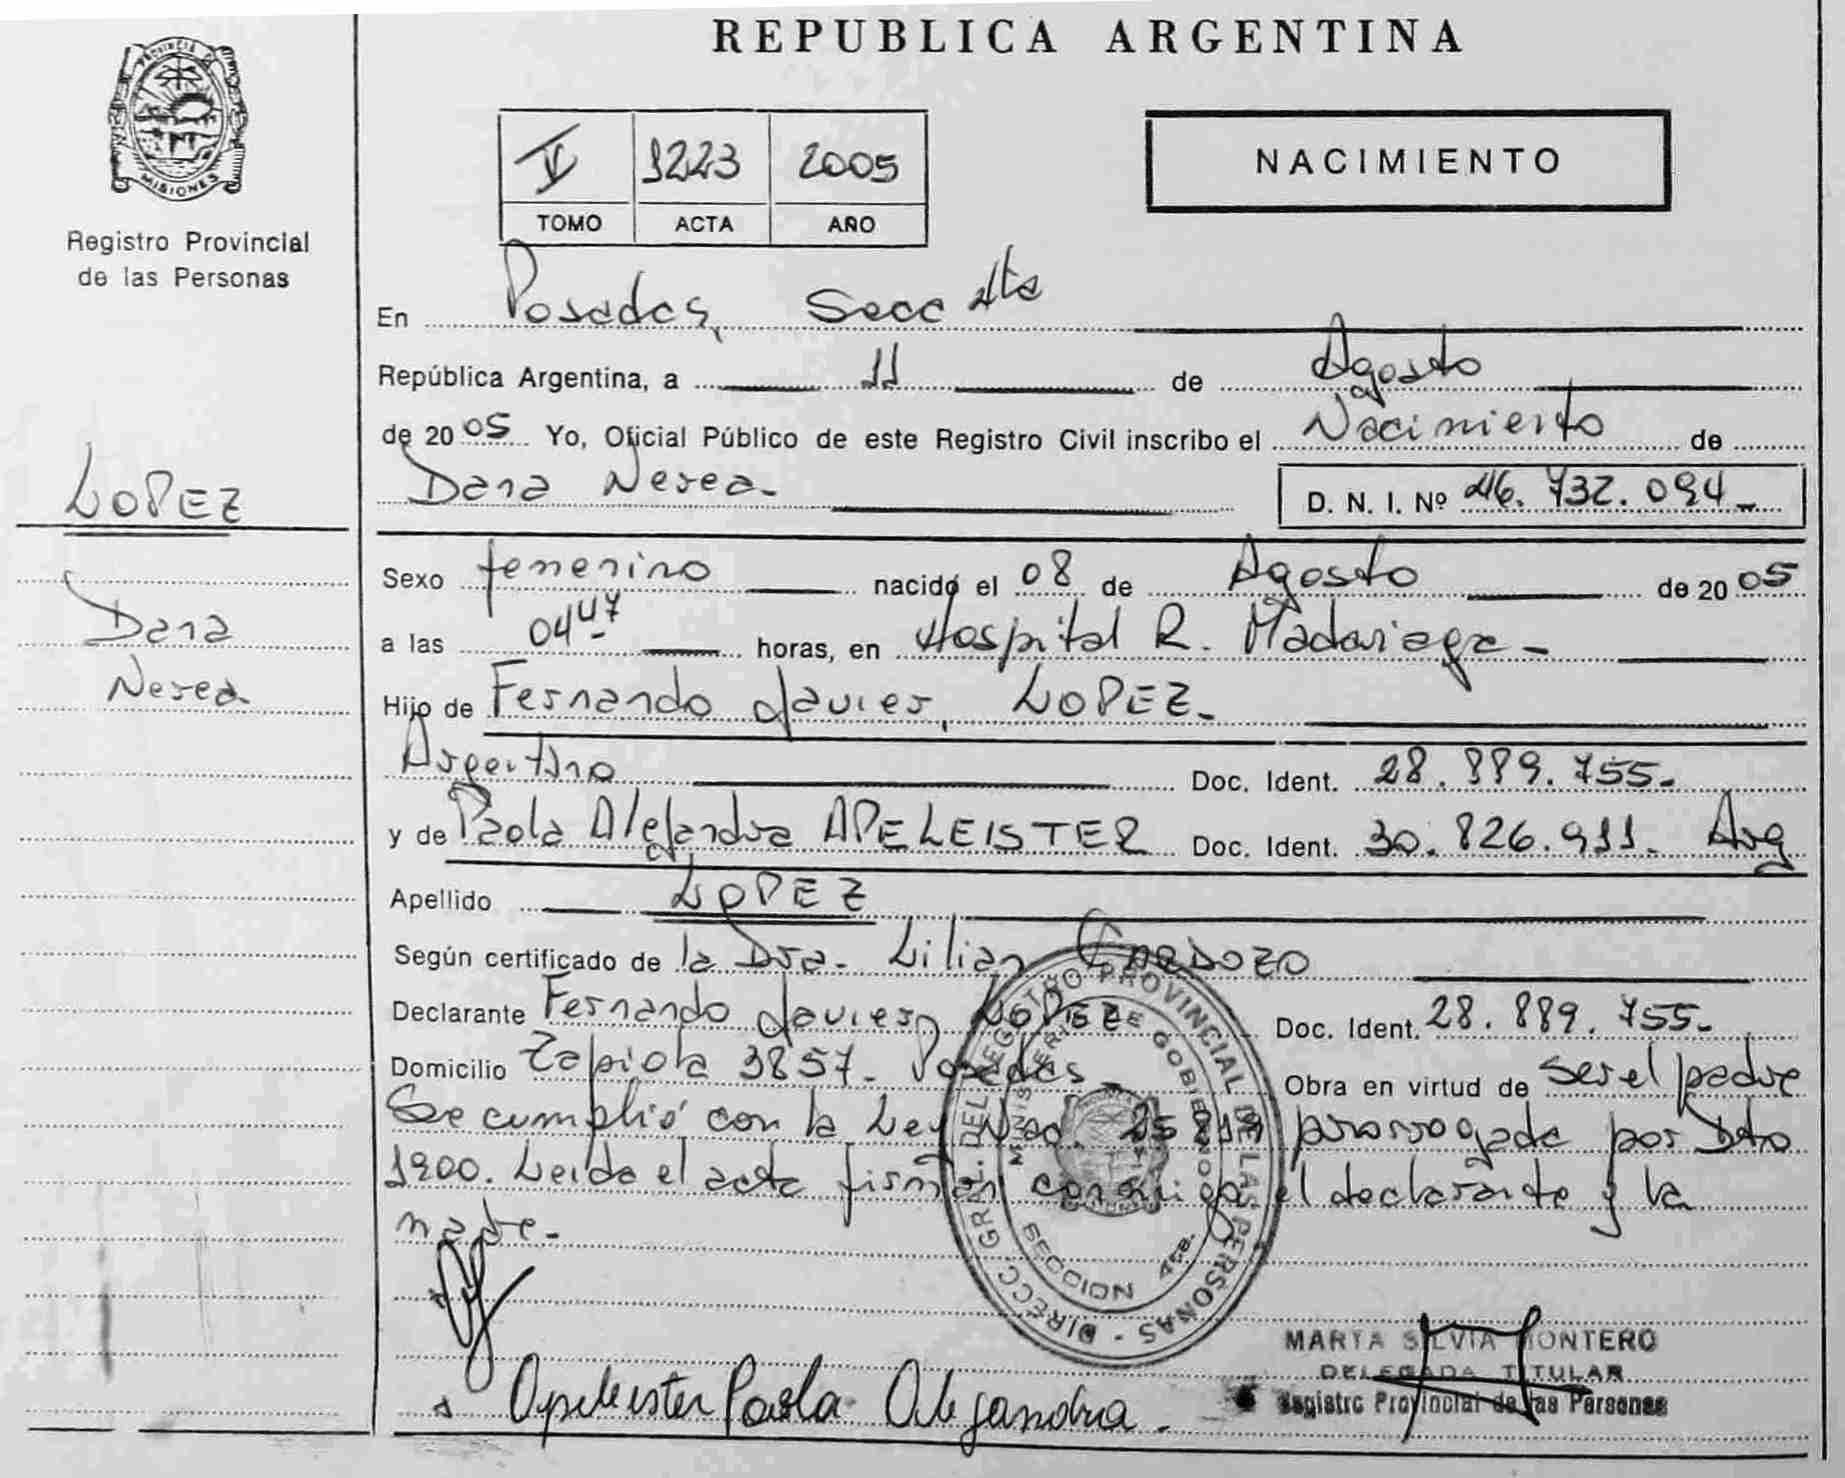 REPUBLICA ARGENTINA
PROVINCIA DE MISIONES
Registro Provincial
de las Personas
V 1223 2005
TOMO ACTA AÑO
NACIMIENTO
En Posadas, Secc 4ta
República Argentina, a 11 de Agosto
de 2005 Yo, Oficial Público de este Registro Civil inscribo el Nacimiento de
Dana Nerea.- D. N. I. Nº 46.732.094.-
LOPEZ
Dana
Nerea
Sexo femenino nacido el 08 de Agosto de 2005
a las 04:47 horas, en Hospital R. Madariaga.-
Hijo de Fernando Javier, LOPEZ.-
Argentino Doc. Ident. 28.889.755.-
y de Paola Alejandra APELEISTER Doc. Ident. 30.826.911. Arg
Apellido LOPEZ
Según certificado de la Dra. Lilian CARDOZO
Declarante Fernando Javier LOPEZ Doc. Ident. 28.889.755.-
Domicilio Zapiola 3857.- Posadas.- Obra en virtud de ser el padre
Se cumplió con la Ley Nac. prorrogada por Dto
1900. Leída el acta firman conmigo el declarante y la
madre.-
DIRECC. GRAL. DEL REGISTRO PROVINCIAL DE LAS PERSONAS
MINISTERIO DE GOBIERNO
SECCION 4ta.
Apeleister Paola Alejandra.
MARTA SILVIA MONTERO
DELEGADA TITULAR
Registro Provincial de las Personas